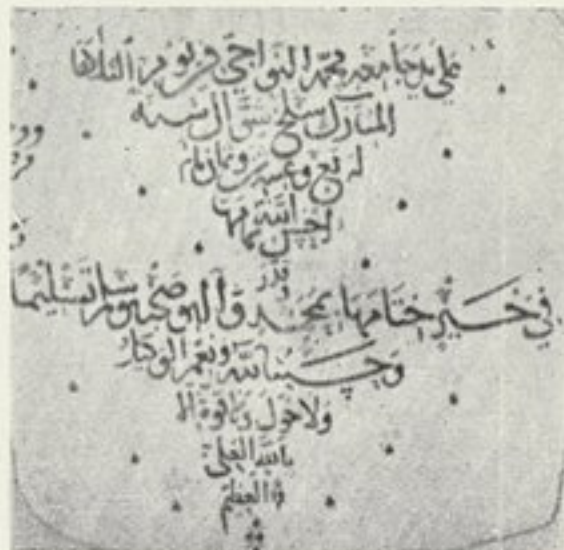 على يد جامعه محمد النواجي في يوم الثلاثا
المبارك سلخ شوال سنه
وعشرين وثمان
احسن الله
في خير اختامها بمحمد واله وصحبه وسلم تسليما
وحسبنا الله ونعم الوكيل
ولا حول ولا قوة الا
بالله العلي
العظيم